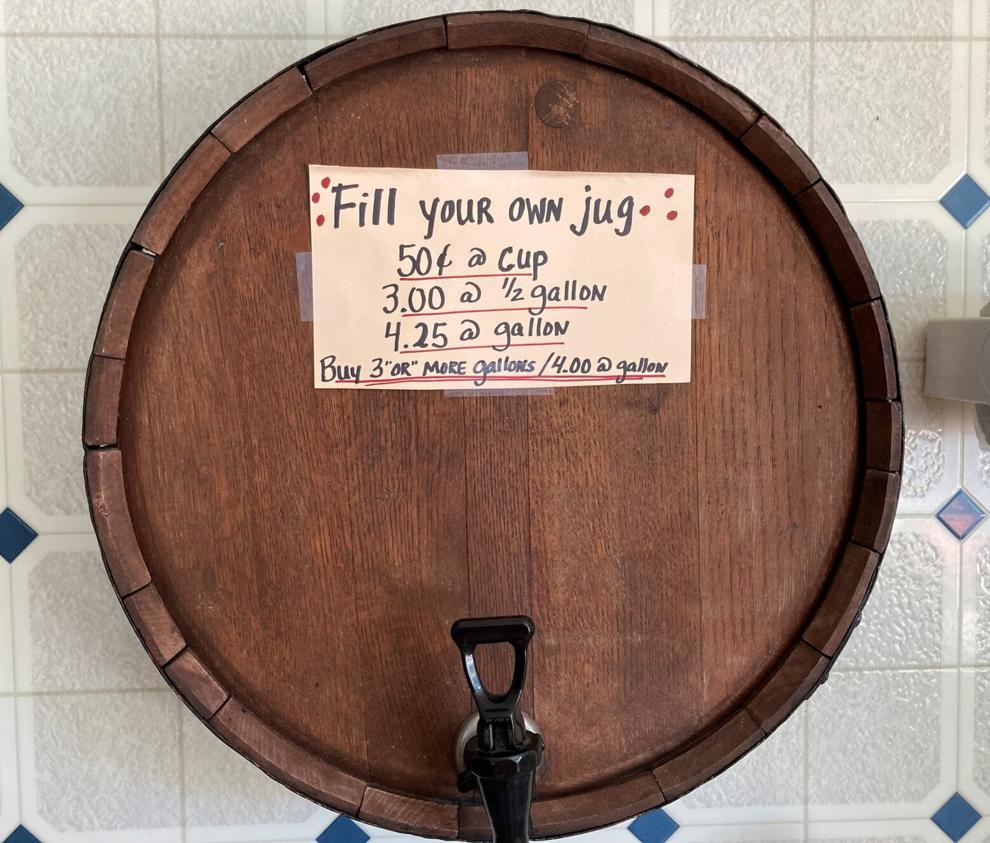 Fill your own jug
50¢ @ cup
3.00 @ 1/2 gallon
4.25 @ gallon
Buy 3 "or" more gallons / 4.00 @ gallon